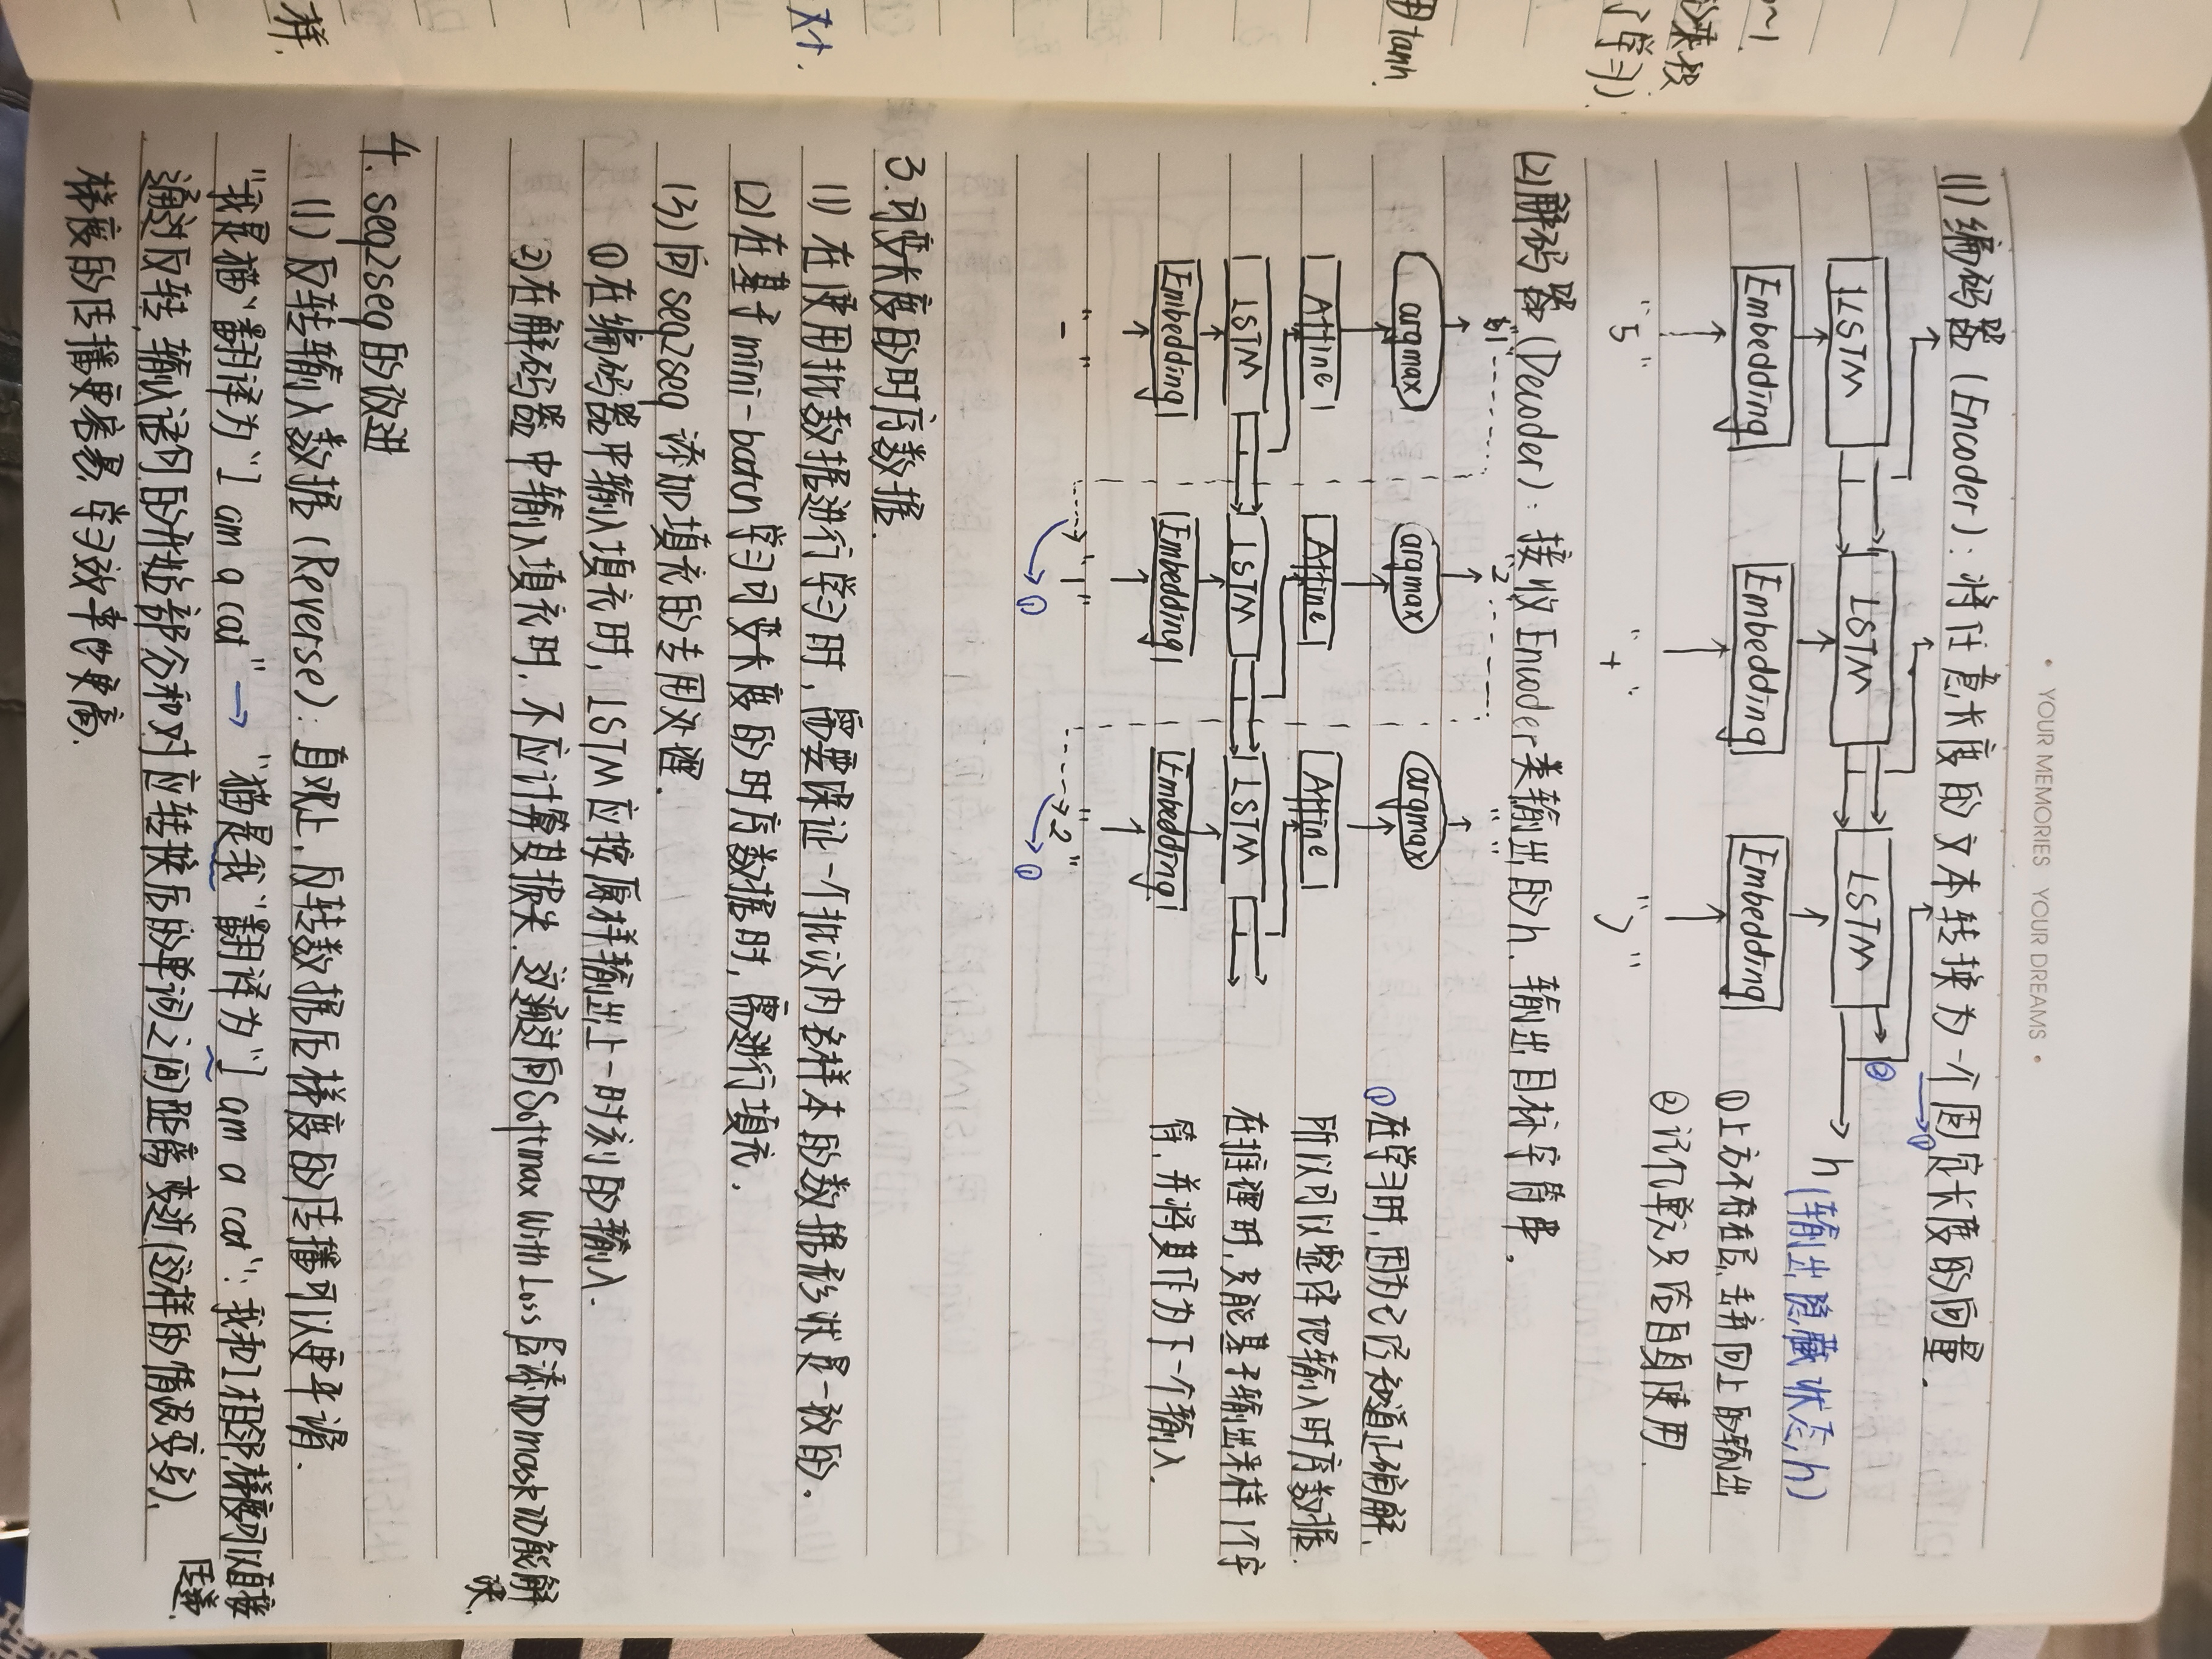 • YOUR MEMORIES YOUR DREAMS •
(1) 编码器 (Encoder): 将任意长度的文本转换为一个固定长度的向量.
①
②
LSTM LSTM LSTM h (输出隐藏状态h)
Embedding Embedding Embedding
①上方不存在层, 丢弃向上的输出
"5" "+" ")"
②记忆单元只给自身使用.
(2) 解码器 (Decoder): 接收Encoder类输出的h, 输出目标字符串.
"1" "2" " "
argmax argmax argmax
①在学习时, 因为已经知道正确解,
Affine Affine Affine
所以可以整体地输入时序数据.
LSTM LSTM LSTM
在推理时, 只能基于输出采样1个字
Embedding Embedding Embedding
符, 并将其作为下一个输入.
"_" "1" "2"
① ①
3. 可变长度的时序数据.
(1) 在使用批数据进行学习时, 需要保证一个批次内各样本的数据形状是一致的.
(2) 在基于mini-batch学习可变长度的时序数据时, 需进行填充.
(3) 向seq2seq添加填充的专用处理.
①在编码器中输入填充时, LSTM应按原样输出上一时刻的输入.
②在解码器中输入填充时, 不应计算其损失. 这通过向Softmax With Loss层添加mask功能解
决.
4. seq2seq的改进
(1) 反转输入数据 (Reverse): 直观上, 反转数据后梯度的传播可以更平滑.
"我是猫"翻译为"I am a cat" → "猫是我"翻译为"I am a cat": 我和I相邻, 梯度可以直接
传递.
通过反转, 输入语句的开始部分和对应转换后的单词之间距离变近(这样的情况变多),
梯度的传播更容易, 学习效率也更高.
样.
大↑.
用tanh.
~1